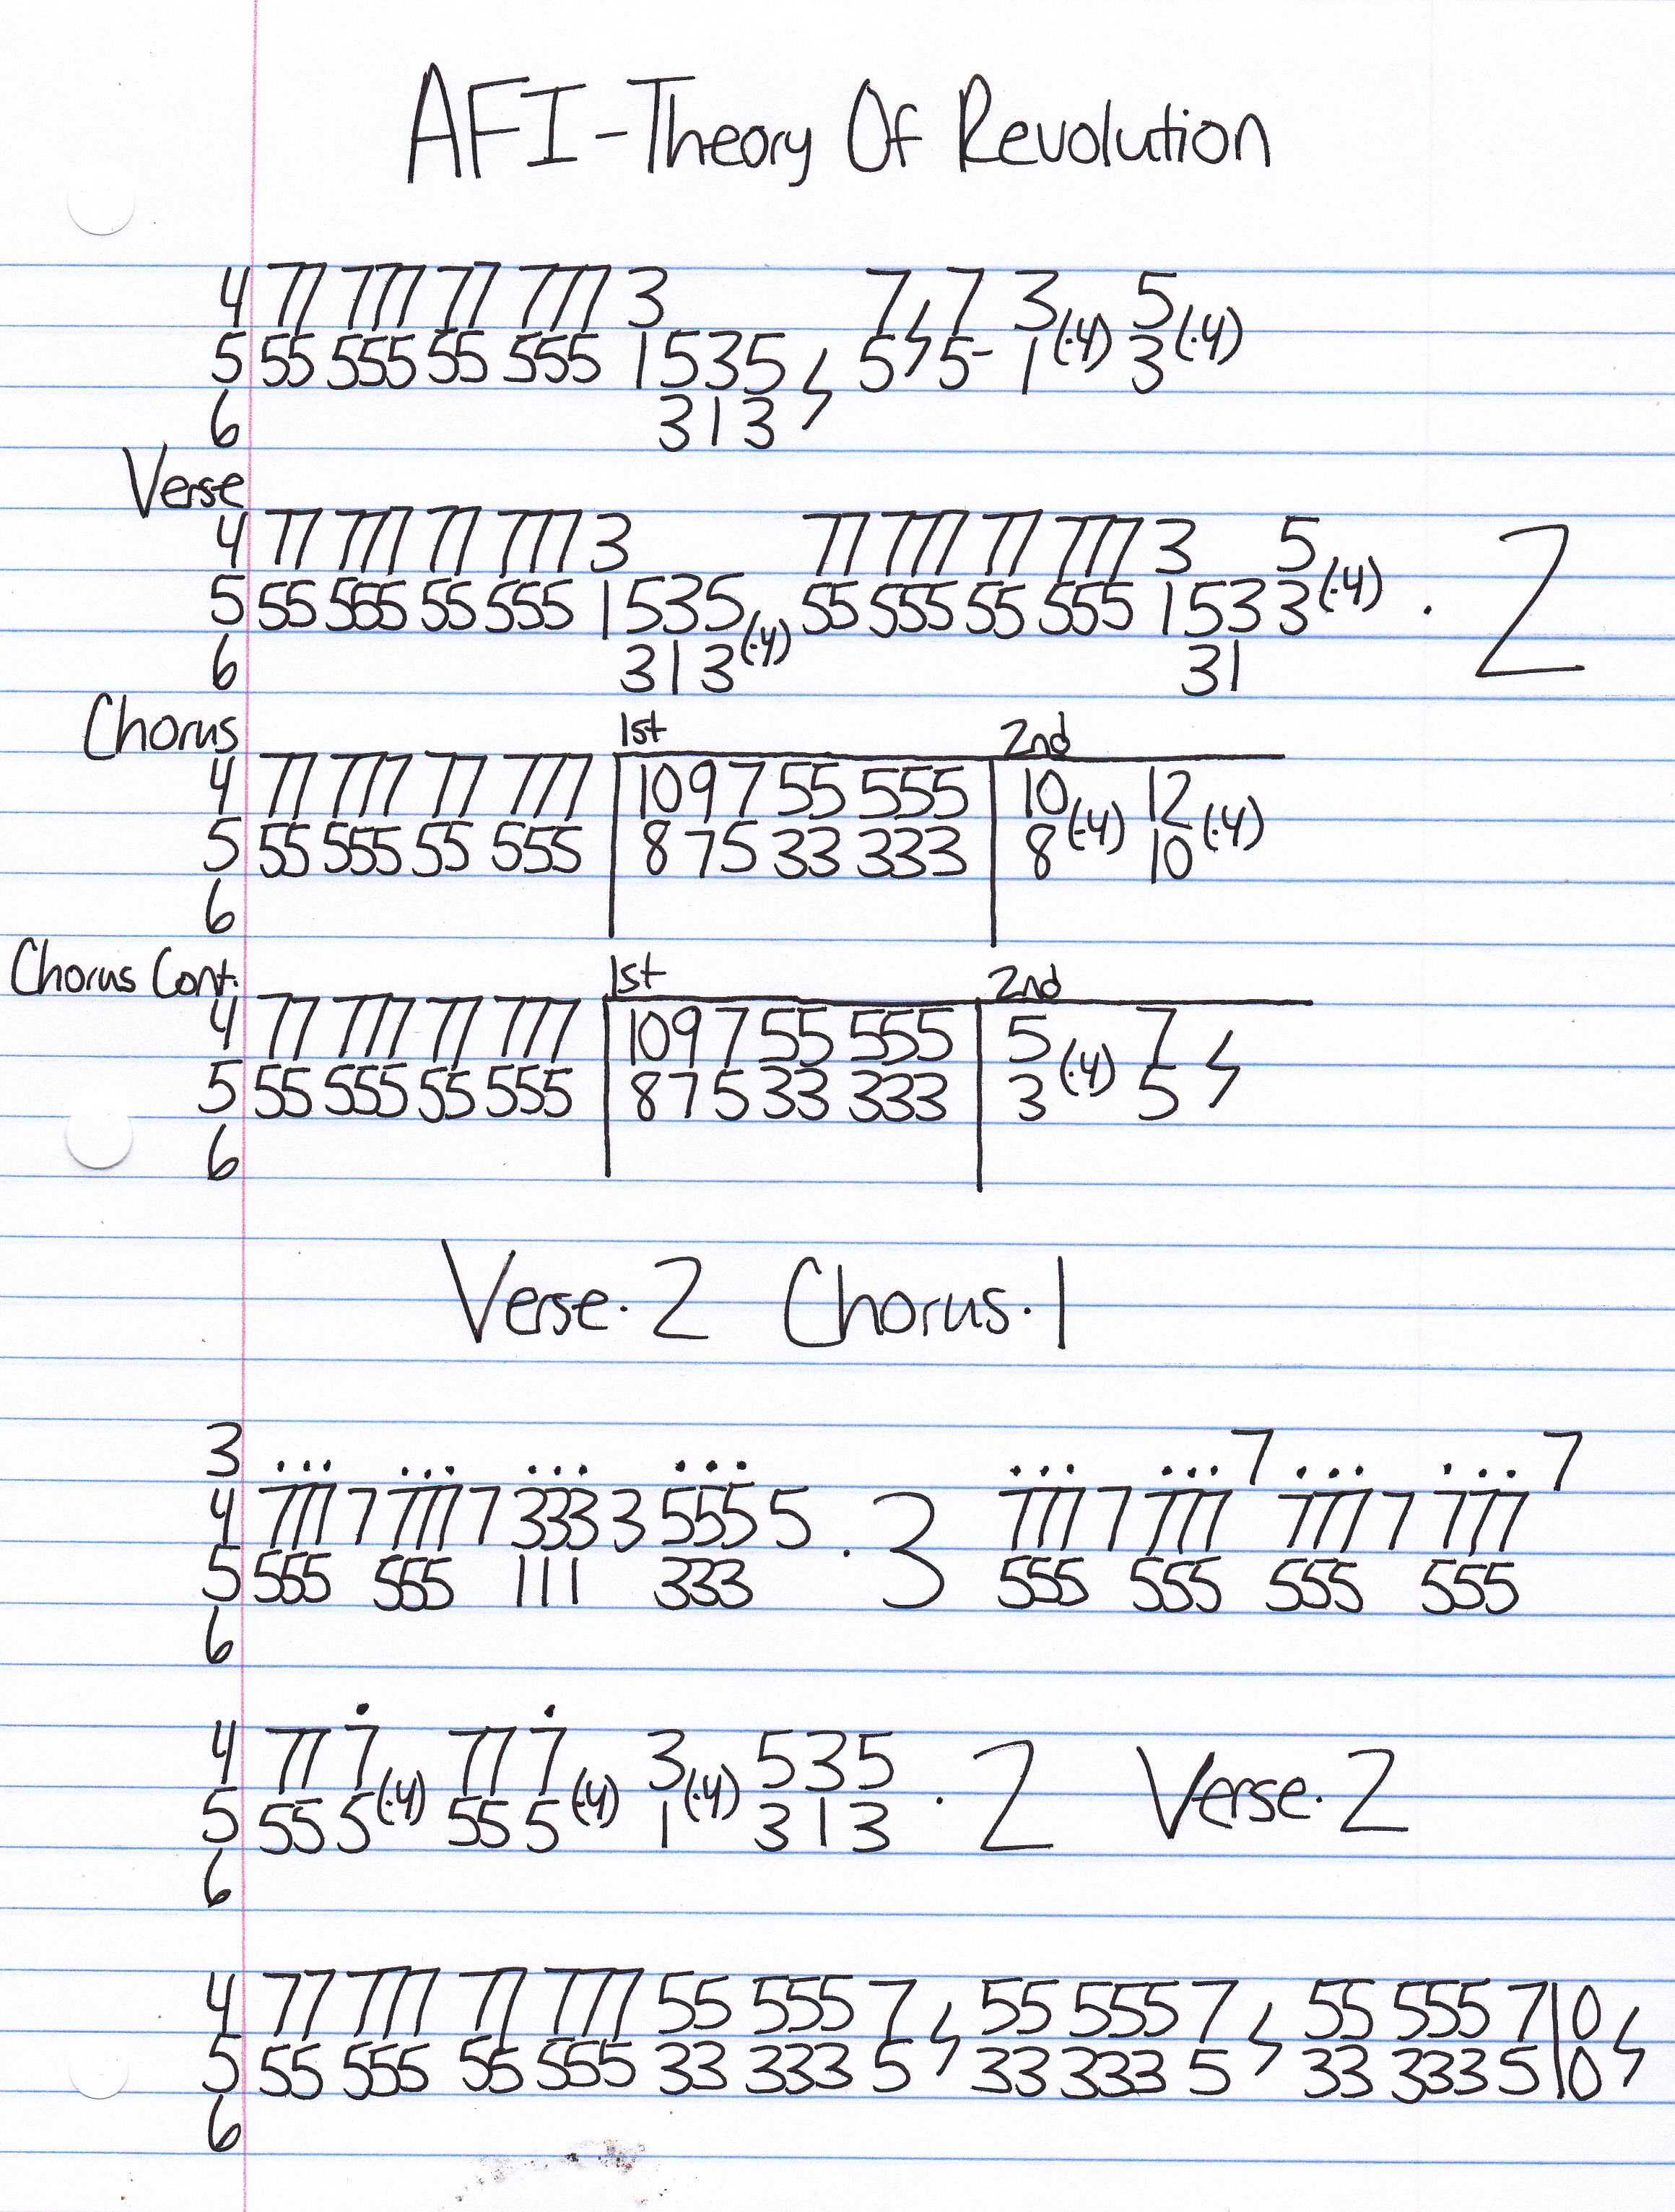 AFI-Theory Of Revolution
4 77 777 77 777 3 7 7 3 5
5 55 555 55 555 1535 5 5- 1(·4) 3(·4)
6 313
Verse
4 77 777 77 777 3 77 777 77 777 3 5
5 55 555 55 555 1535 55 555 55 555 1533(·4) · 2
6 313(·4) 31
Chorus 1st 2nd
4 77 777 77 777 10 9 7 55 555 10 12
5 55 555 55 555 8 7 5 33 333 8(·4) 10(·4)
6
Chorus Cont. 1st 2nd
4 77 777 77 777 10 9 7 55 555 5 7
5 55 555 55 555 8 7 5 33 333 3(·4) 5
6
Verse·2 Chorus·1
3 ... ... ... ... ... ...7 ... ...7
4 777 7 777 7 333 3 555 5 · 3 777 7 777 777 7 777
5 555 555 111 333 555 555 555 555
6
4 77 7 77 7 3 535
5 55 5(·4) 55 5(·4) 1(·4) 313 · 2 Verse·2
6
4 77 777 77 777 55 555 7 55 555 7 55 555 7 10
5 55 555 55 555 33 333 5 33 333 5 33 333 5 10
6